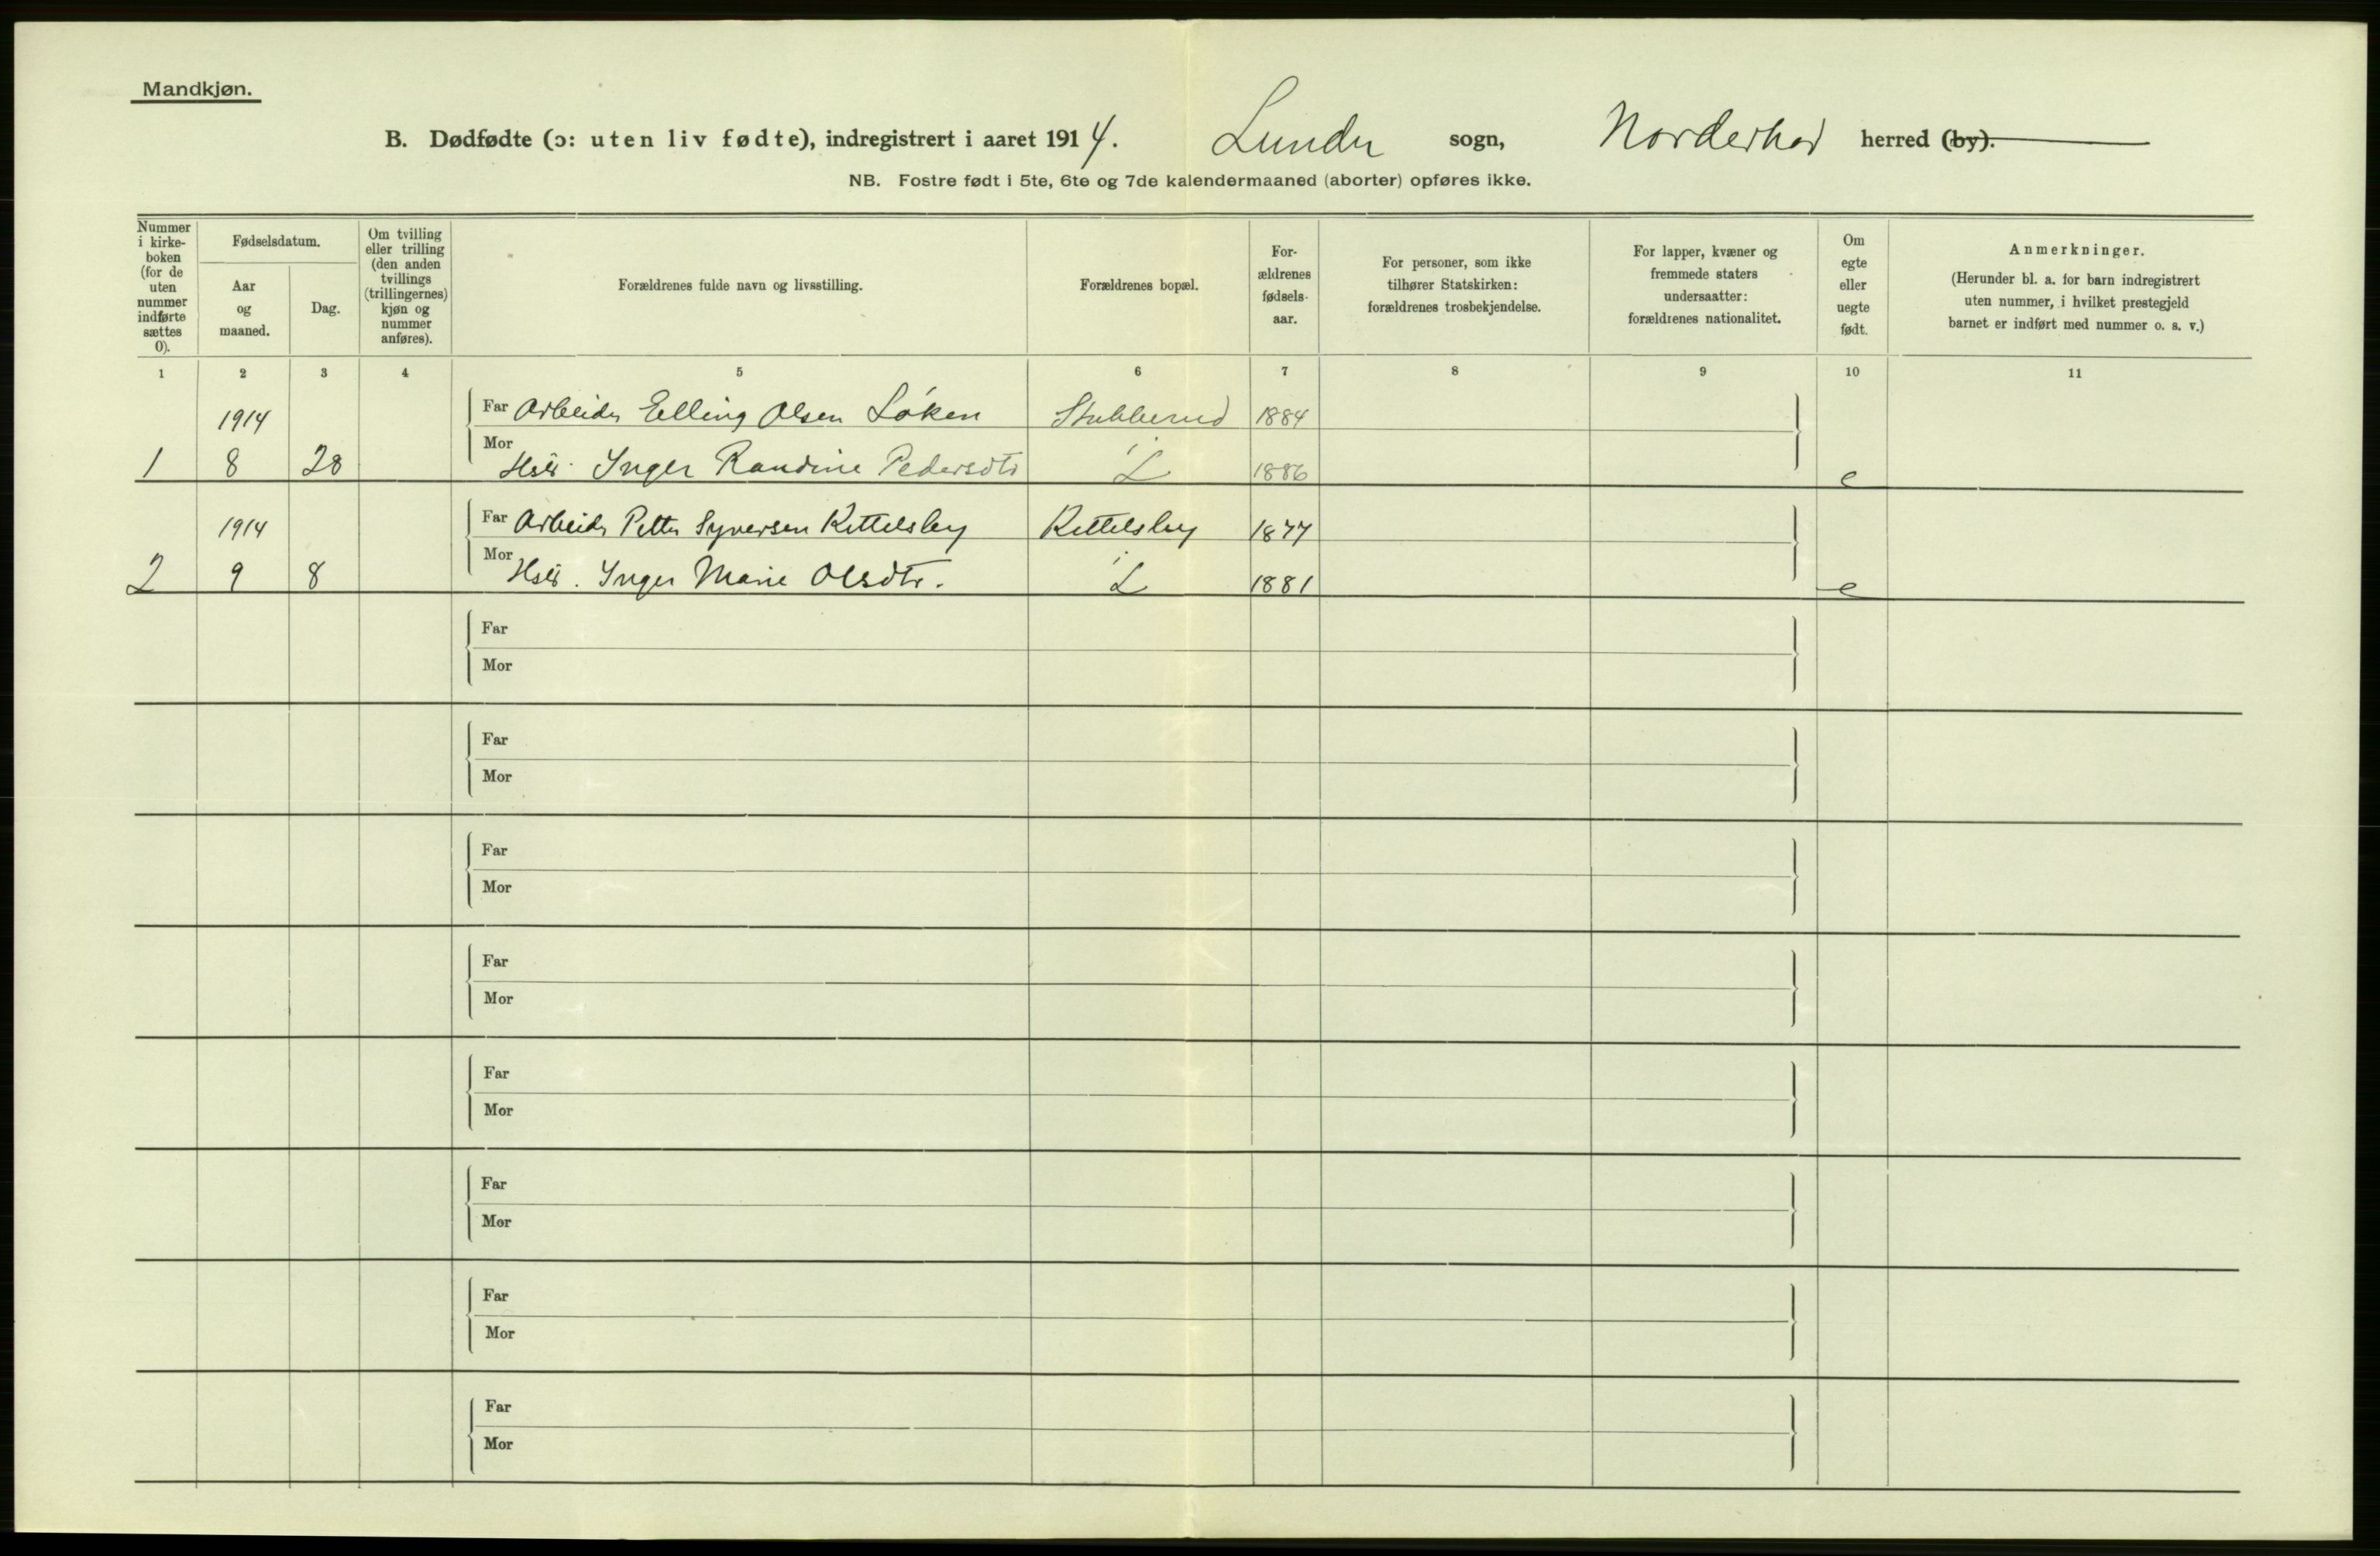 Mandkjøn.
B. Dødfødte (ɔ: uten liv fødte), indregistrert i aaret 1914. Lunder sogn, Norderhov herred (by).
NB. Fostre født i 5te, 6te og 7de kalendermaaned (aborter) opføres ikke.
Nummer i kirke- boken (for de uten nummer indførte sættes 0).
Fødselsdatum.
Aar og maaned.
Dag.
Om tvilling eller trilling (den anden tvillings (trillingernes) kjøn og nummer anføres).
Forældrenes fulde navn og livsstilling.
Forældrenes bopæl.
For- ældrenes fødsels- aar.
For personer, som ikke tilhører Statskirken: forældrenes trosbekjendelse.
For lapper, kvæner og fremmede staters undersaatter: forældrenes nationalitet.
Om egte eller uegte født.
Anmerkninger.
(Herunder bl. a. for barn indregistrert uten nummer, i hvilket prestegjeld barnet er indført med nummer o. s. v.)
1 2 3 4 5 6 7 8 9 10 11
1914 Far Arbeider Elling Olsen Løken Stubberud 1884
1 8 28 Mor Hstr. Inger Randine Pedersdtr 1886 e
1914 Far Arbeider Petter Syversen Kittelsby Kittelsby 1877
2 9 8 Mor Hstr. Inger Marie Olsdtr. 1881 e
Far
Mor
Far
Mor
Far
Mor
Far
Mor
Far
Mor
Far
Mor
Far
Mor
Far
Mor